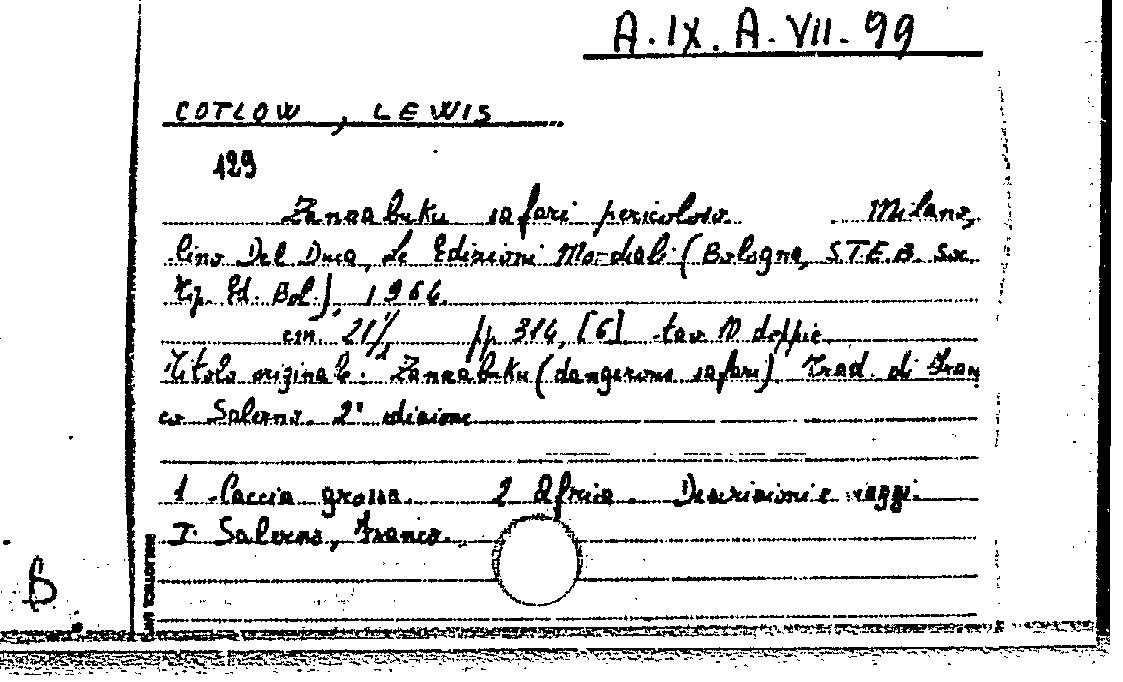 A.IX.A.VII.99
COTLOW, LEWIS
129
Zanzabuku safari pericoloso. Milano,
Cino Del Duca, Le Edizioni Mondiali (Bologna, S.T.E.B. Soc.
Tip. Ed. Bol.), 1964.
cm. 21½ pp. 314, [6] tav. 10 doppie
Titolo originale: Zanzabuku (dangerous safari) Trad. di Fran
co Salerno. 2ª edizione
1 Caccia grossa. 2 Africa. Descrizioni e viaggi.
I. Salerno, Franco.
B